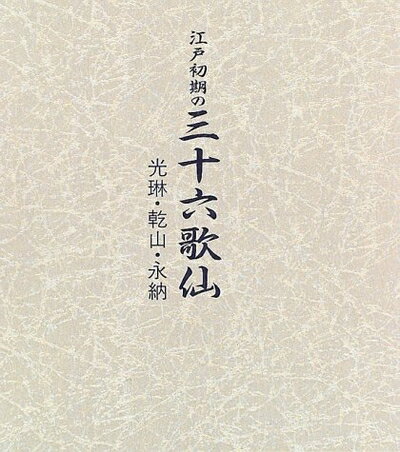 江戸初期の三十六歌仙
光琳・乾山・永納